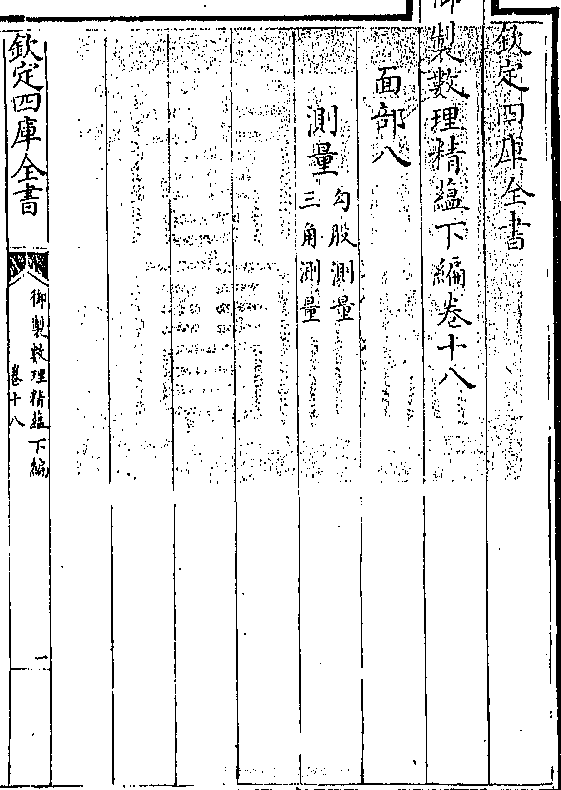 欽定四庫全書
御製數理精蘊下編卷十八
面部八
測量
勾股測量
三角測量
欽定四庫全書
御製數理精蘊下編
卷十八
一